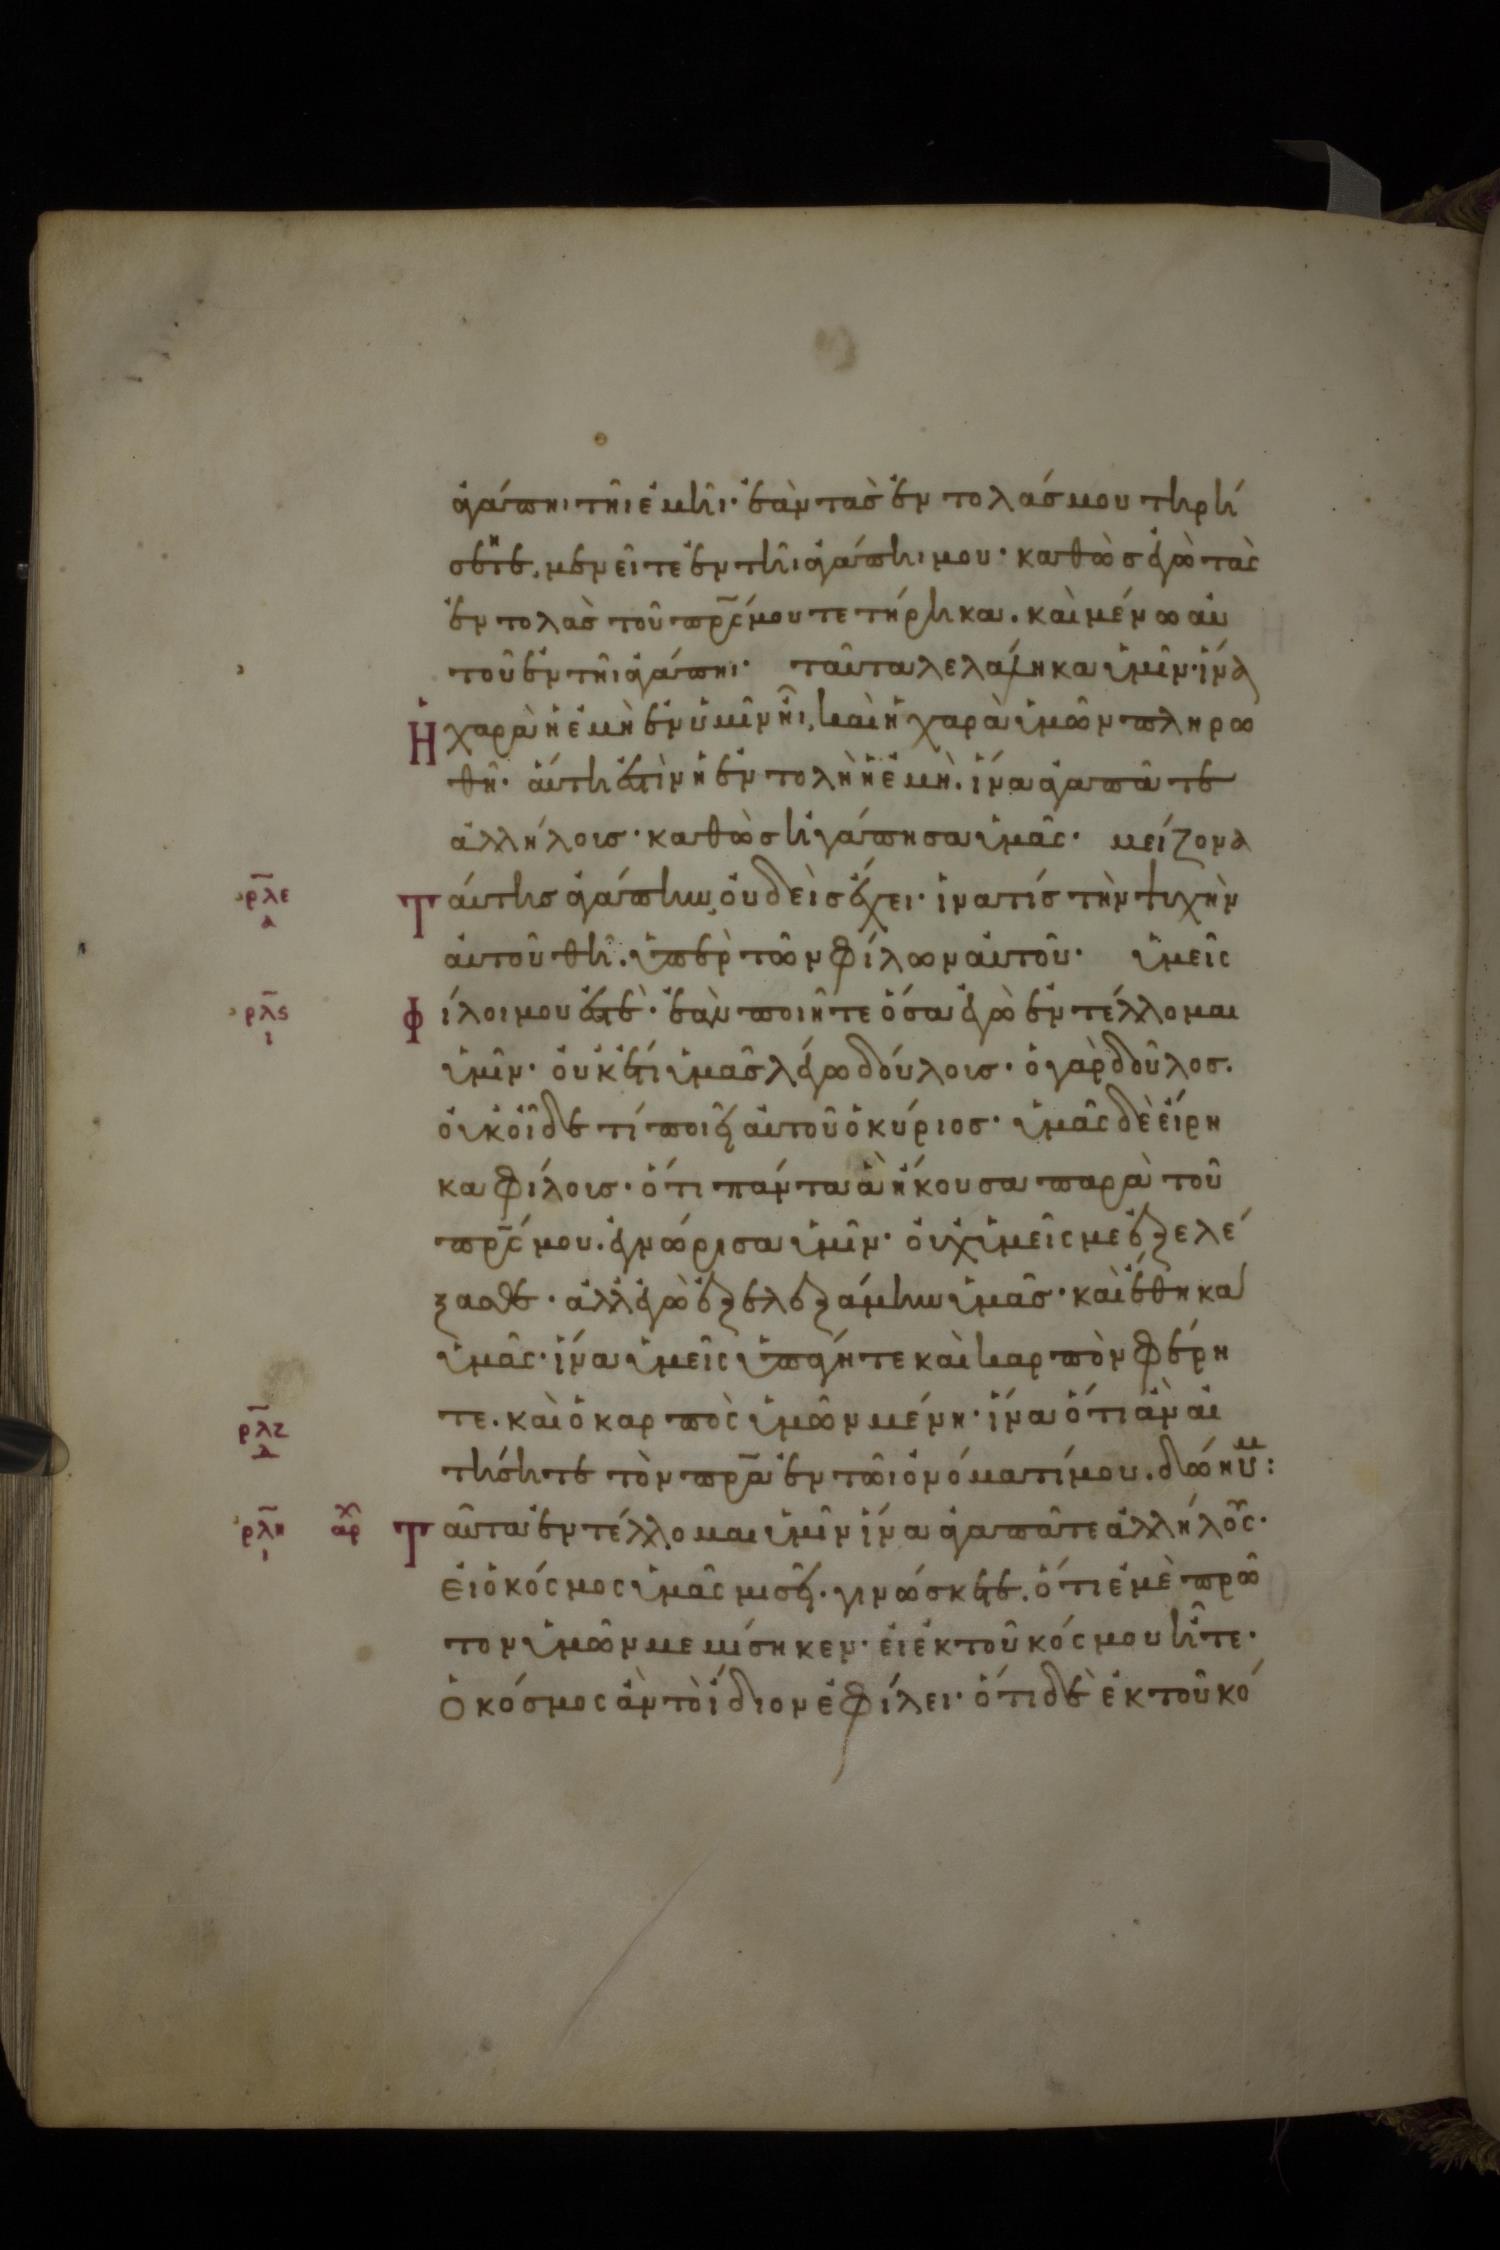 ἀγάπηι τῆι ἐμῆι· ἐὰν τὰς ἐντολάς μου τηρή
σητε, μενεῖτε ἐν τῆι ἀγάπηι μου· καθὼς ἐγὼ τὰς
ἐντολὰς τοῦ πρ̅ς μου τετήρηκα. καὶ μένω αὐ
τοῦ ἐν τῆι ἀγάπηι· ταῦτα λελάληκα ὑμῖν· ἵνα
Ἡ χαρὰ ἡ ἐμὴ ἐν ὑμῖν ἦι, καὶ ἡ χαρὰ ὑμῶν πληρω
θῆ· αὕτη ἐστὶν ἡ ἐντολὴ ἡ ἐμὴ. ἵνα ἀγαπᾶτε
ἀλλήλους· καθὼς ἠγάπησα ὑμᾶς· μείζονα
ρλε α Ταύτης ἀγάπην, οὐδεὶς ἔχει· ἵνα τίς τὴν ψυχὴν
αὐτοῦ θῆ. ὑπὲρ τῶν φίλων αὐτοῦ· ὑμεῖς
ρλς ι Φίλοι μου ἐστὲ· ἐὰν ποιῆτε ὅσα ἐγὼ ἐντέλλομαι
ὑμῖν· οὐκέτι ὑμᾶς λέγω δούλους· ὁ γὰρ δοῦλος.
οὐκ οἶδε τί ποιεῖ αὐτοῦ ὁ κύριος· ὑμᾶς δὲ εἴρη
κα φίλους· ὅτι πάντα ἃ ἤκουσα παρὰ τοῦ
πρ̅ς μου. ἐγνώρισα ὑμῖν· οὐχ ὑμεῖς με ἐξελέ
ξασθε· ἀλλ ἐγὼ ἐξελεξάμην ὑμᾶς· καὶ ἔθηκα
ὑμᾶς· ἵνα ὑμεῖς ὑπάγητε καὶ καρπὸν φέρη
ρλζ δ τε. καὶ ὁ καρπὸς ὑμῶν μένη· ἵνα ὅτι ἂν αἰ
τήσητε τὸν πρ̅α ἐν τῶι ὀνόματί μου. δώη ὑμ:
ρλη ι αρχ Ταῦτα ἐντέλλομαι ὑμῖν ἵνα ἀγαπᾶτε ἀλλήλους·
Εἰ ὁ κόσμος ὑμᾶς μισεῖ· γινώσκετε. ὅτι ἐμὲ πρῶ
τον ὑμῶν μεμίσηκεν· εἰ ἐκ τοῦ κόσμου ἦτε·
Ὁ κόσμος ἂν τὸ ἴδιον ἐφίλει· ὅτι δὲ ἐκ τοῦ κό